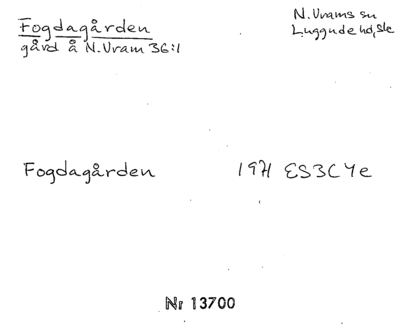 Fogdagården
gård å N.Vram 36:1
N.Vrams sn
Luggude hd, Sk
Fogdagården 1971 ES3C4e
Nr 13700